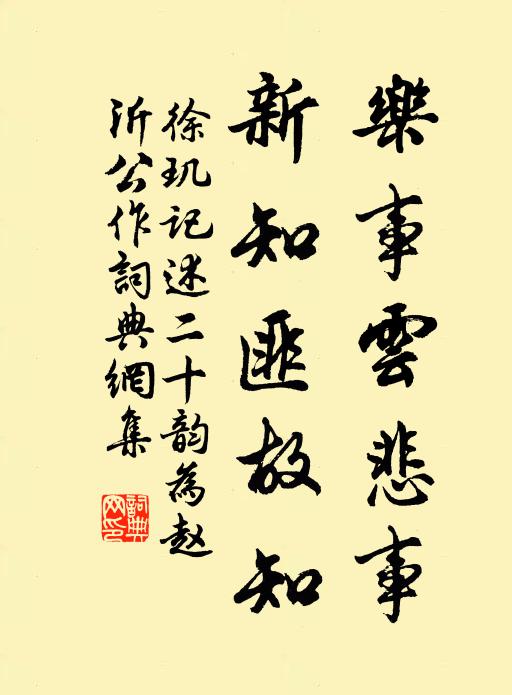 樂事雲悲事
新知匪故知
徐玑记述二十韵為赵
沂公作詞典網集
詞典
网印